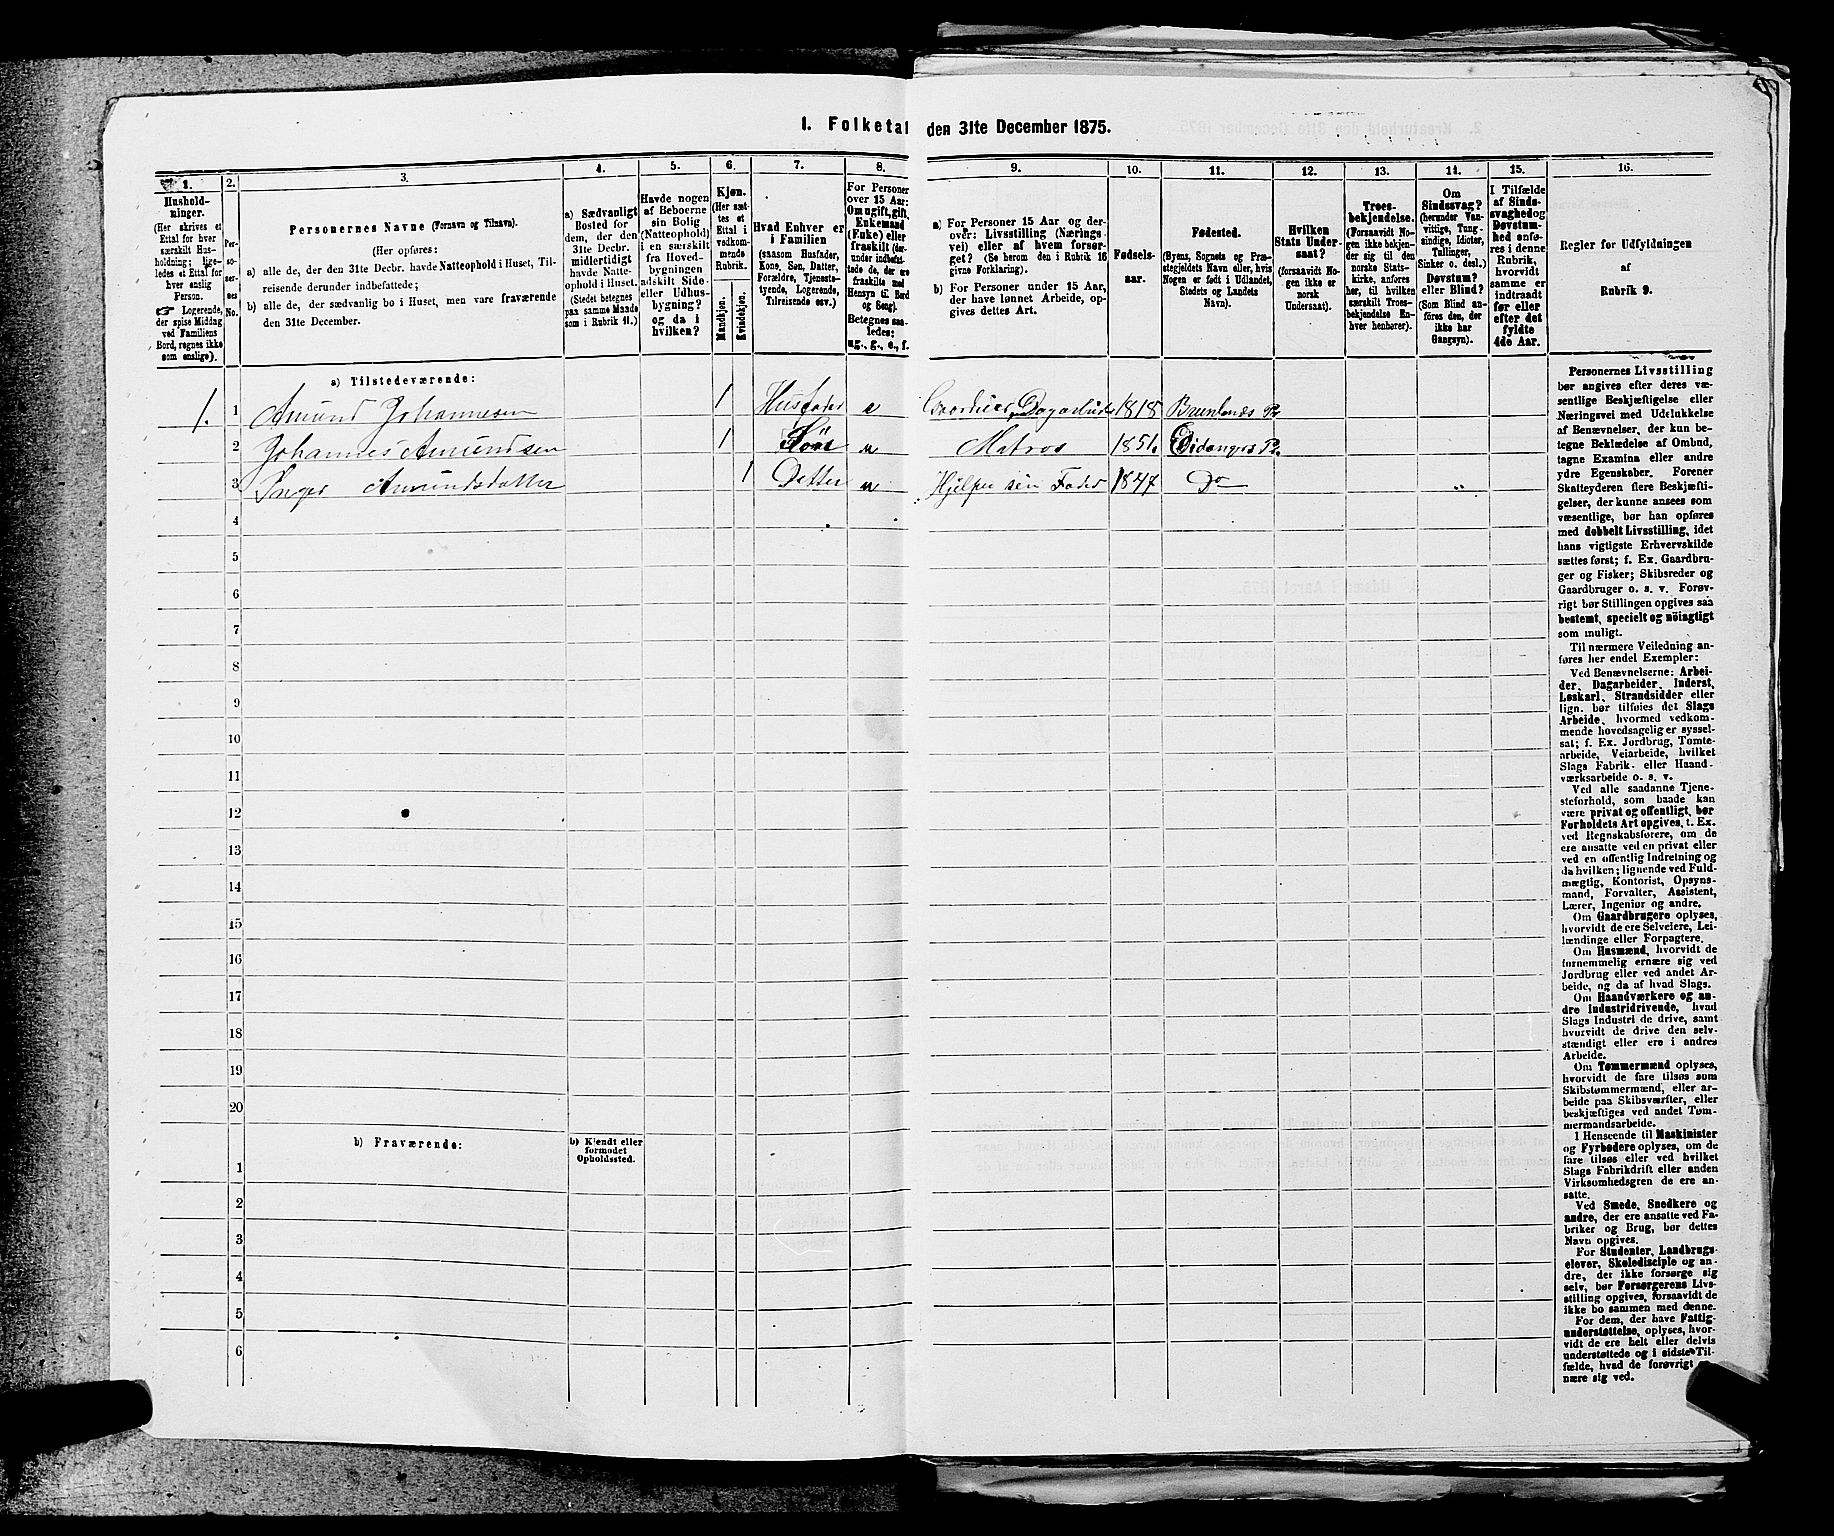 1. Folketal den 31te December 1875.
1.
Hushold-
ninger.
(Her skrives et
Ettal for hver
særskilt Hus-
holdning; lige-
ledes et Ettal for
hver enslig
Person.
☞ Logerende,
der spise Middag
ved Familiens
Bord, regnes ikke
som enslige).
2.
Per-
so-
ner-
nes
No.
3.
Personernes Navne (Fornavn og Tilnavn).
(Her opføres:
a) alle de, der den 31te Decbr. havde Natteophold i Huset, Til-
reisende derunder indbefattede;
b) alle de, der sædvanlig bo i Huset, men vare fraværende
den 31te December.
4.
a) Sædvanligt
Bosted for
dem, der den
31te Decbr.
midlertidigt
havde Natte-
ophold i Huset.
(Stedet betegnes
paa samme Maade
som i Rubrik 11.)
5.
Havde nogen
af Beboerne
sin Bolig
(Natteophold)
i en særskilt
fra Hoved-
bygningen
adskilt Side-
eller Udhus-
bygning?
og da i
hvilken?
6.
Kjøn.
(Her sæt-
tes et
Ettal i
vedkom-
mende
Rubrik.
Mandkjøn.
Kvindekjøn.
7.
Hvad Enhver er
i Familien
(saasom Husfader,
Kone, Søn, Datter,
Forældre, Tjeneste-
tyende, Logerende,
Tilreisende osv.)
8.
For Personer
over 15 Aar:
Om ugift, gift,
Enkemand
(Enke) eller
fraskilt (der-
under indbefat-
tede de, der ere
fraskilte med
Hensyn til Bord
og Seng).
Betegnes saa-
ledes:
ug., g., e., f.
9.
a) For Personer 15 Aar og der-
over: Livsstilling (Nærings-
vei) eller af hvem forsør-
get? (Se herom den i Rubrik 16
givne Forklaring).
b) For Personer under 15 Aar,
der have lønnet Arbeide, op-
gives dettes Art.
10.
Fødsels-
aar.
11.
Fødested.
(Byens, Sognets og Præ-
stegjeldets Navn eller, hvis
Nogen er født i Udlandet,
Stedets og Landets
Navn).
12.
Hvilken
Stats Under-
saat?
(forsaavidt No-
gen ikke er
norsk
Undersaat).
13.
Troes-
bekjendelse.
(Forsaavidt No-
gen ikke bekjen-
der sig til den
norske Stats-
kirke, anføres
her, til hvilken
særskilt Troes-
bekjendelse En-
hver henhører).
14.
Om
Sindssvag?
(herunder Van-
vittige, Tung-
sindige, Idioter,
Tullinger,
Sinker o. desl.)
Døvstum?
eller Blind?
(Som Blind an-
føres den, der
ikke har
Gangsyn).
15.
I Tilfælde
af Sinds-
svaghed og
Døvstum-
hed anfø-
res i denne
Rubrik,
hvorvidt
samme er
indtraadt
før eller
efter det
fyldte
4de Aar.
16.
Regler for Udfyldningen
af
Rubrik 9.
a) Tilstedeværende:
1. 1 Amund Johannesen 1 Husfader e Dagarbeider 1818 Brunlanæs Pr
2 Johannes Amundsen 1 Søn u Matros 1851. Eidangers Pr.
3 Inger Amundsdatter 1 Detter u Hjelper sin Fader 1847 Do „
4
5
6
7
8
9
10
11
12
13
14
15
16
17
18
19
20
b) Fraværende:
b) Kjendt eller
formodet
Opholdssted.
1
2
3
4
5
6
Personernes Livsstilling
bør angives efter deres væ-
sentlige Beskjæftigelse eller
Næringsvei med Udelukkelse
af Benævnelser, der kun be-
tegne Beklædelse af Ombud,
tagne Examina eller andre
ydre Egenskaber. Forener
Skatteyderen flere Beskjæfti-
gelser, der kunne ansees som
væsentlige, bør han opføres
med dobbelt Livsstilling, idet
hans vigtigste Erhvervskilde
sættes først; f. Ex. Gaardbru-
ger og Fisker; Skibsreder og
Gaardbruger o. s. v. Forøv-
rigt bør Stillingen opgives saa
bestemt, specielt og nöiagtigt
som muligt.
Til nærmere Veiledning an-
føres her endel Exempler:
Ved Benævnelserne: Arbei-
der, Dagarbeider, Inderst,
Løskarl, Strandsidder eller
lign. bør tilføies det Slags
Arbeide, hvormed vedkom-
mende hovedsagelig er syssel-
sat; f. Ex. Jordbrug, Tomte-
arbeide, Veiarbeide, hvilket
Slags Fabrik- eller Haand-
værksarbeide o. s. v.
Ved alle saadanne Tjene-
steforhold, som baade kan
være privat og offentligt, bør
Forholdets Art opgives, t. Ex.
ved Regnskabsførere, om de
ere ansatte ved en privat eller
ved en offentlig Indretning og
da hvilken; lignende ved Fuld-
mægtig, Kontorist, Opsyns-
mand, Forvalter, Assistent,
Lærer, Ingeniør og andre.
Om Gaardbrugere oplyses,
hvorvidt de ere Selveiere, Lei-
lændinge eller Forpagtere.
Om Husmænd, hvorvidt de
fornemmelig ernære sig ved
Jordbrug eller ved andet Ar-
beide, og da af hvad Slags.
Om Haandværkere og an-
dre Industridrivende, hvad
Slags Industri de drive, samt
hvorvidt de drive den selv-
stændigt eller ere i andres
Arbeide.
Om Tømmermænd oplyses,
hvorvidt de fare tilsøs som
Skibstømmermænd, eller ar-
beide paa Skibsværfter, eller
beskjæftiges ved andet Tøm-
mermandsarbeide.
I Henseende til Maskinister
og Fyrbødere oplyses, om de
fare tilsøs eller ved hvilket
Slags Fabrikdrift eller anden
Virksomhedsgren de ere an-
satte.
Ved Smede, Snedkere og
andre, der ere ansatte ved Fa-
briker og Brug, bør dettes
Navn opgives.
For Studenter, Landbrugs-
elever, Skoledisciple og an-
dre, der ikke forsørge sig
selv, bør Forsørgerens Livs-
stilling opgives, forsaavidt de
ikke bo sammen med denne.
For dem, der have Fattig-
understøttelse, oplyses, hvor-
vidt de ere helt eller delvis
understøttede og i sidste Til-
fælde, hvad de forøvrigt er-
nære sig ved.